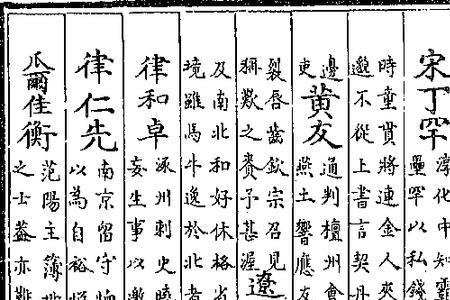 宋丁罕
淳化中知靈
壘罕以私錢
時童貫將連金人夾
邀不從上書言契丹
邊
吏
黄友
通判檀州會
燕土響應友
裂唇齒欽宗召見
稱歎之賚予甚渥
遼
及南北和好休格省
境雖馬牛逸於北者
律和卓
涿州刺史睦
妄生事以邀
律仁先
南京留守恤
以為自裕
瓜爾佳衡
范陽主簿
之士蓋亦難